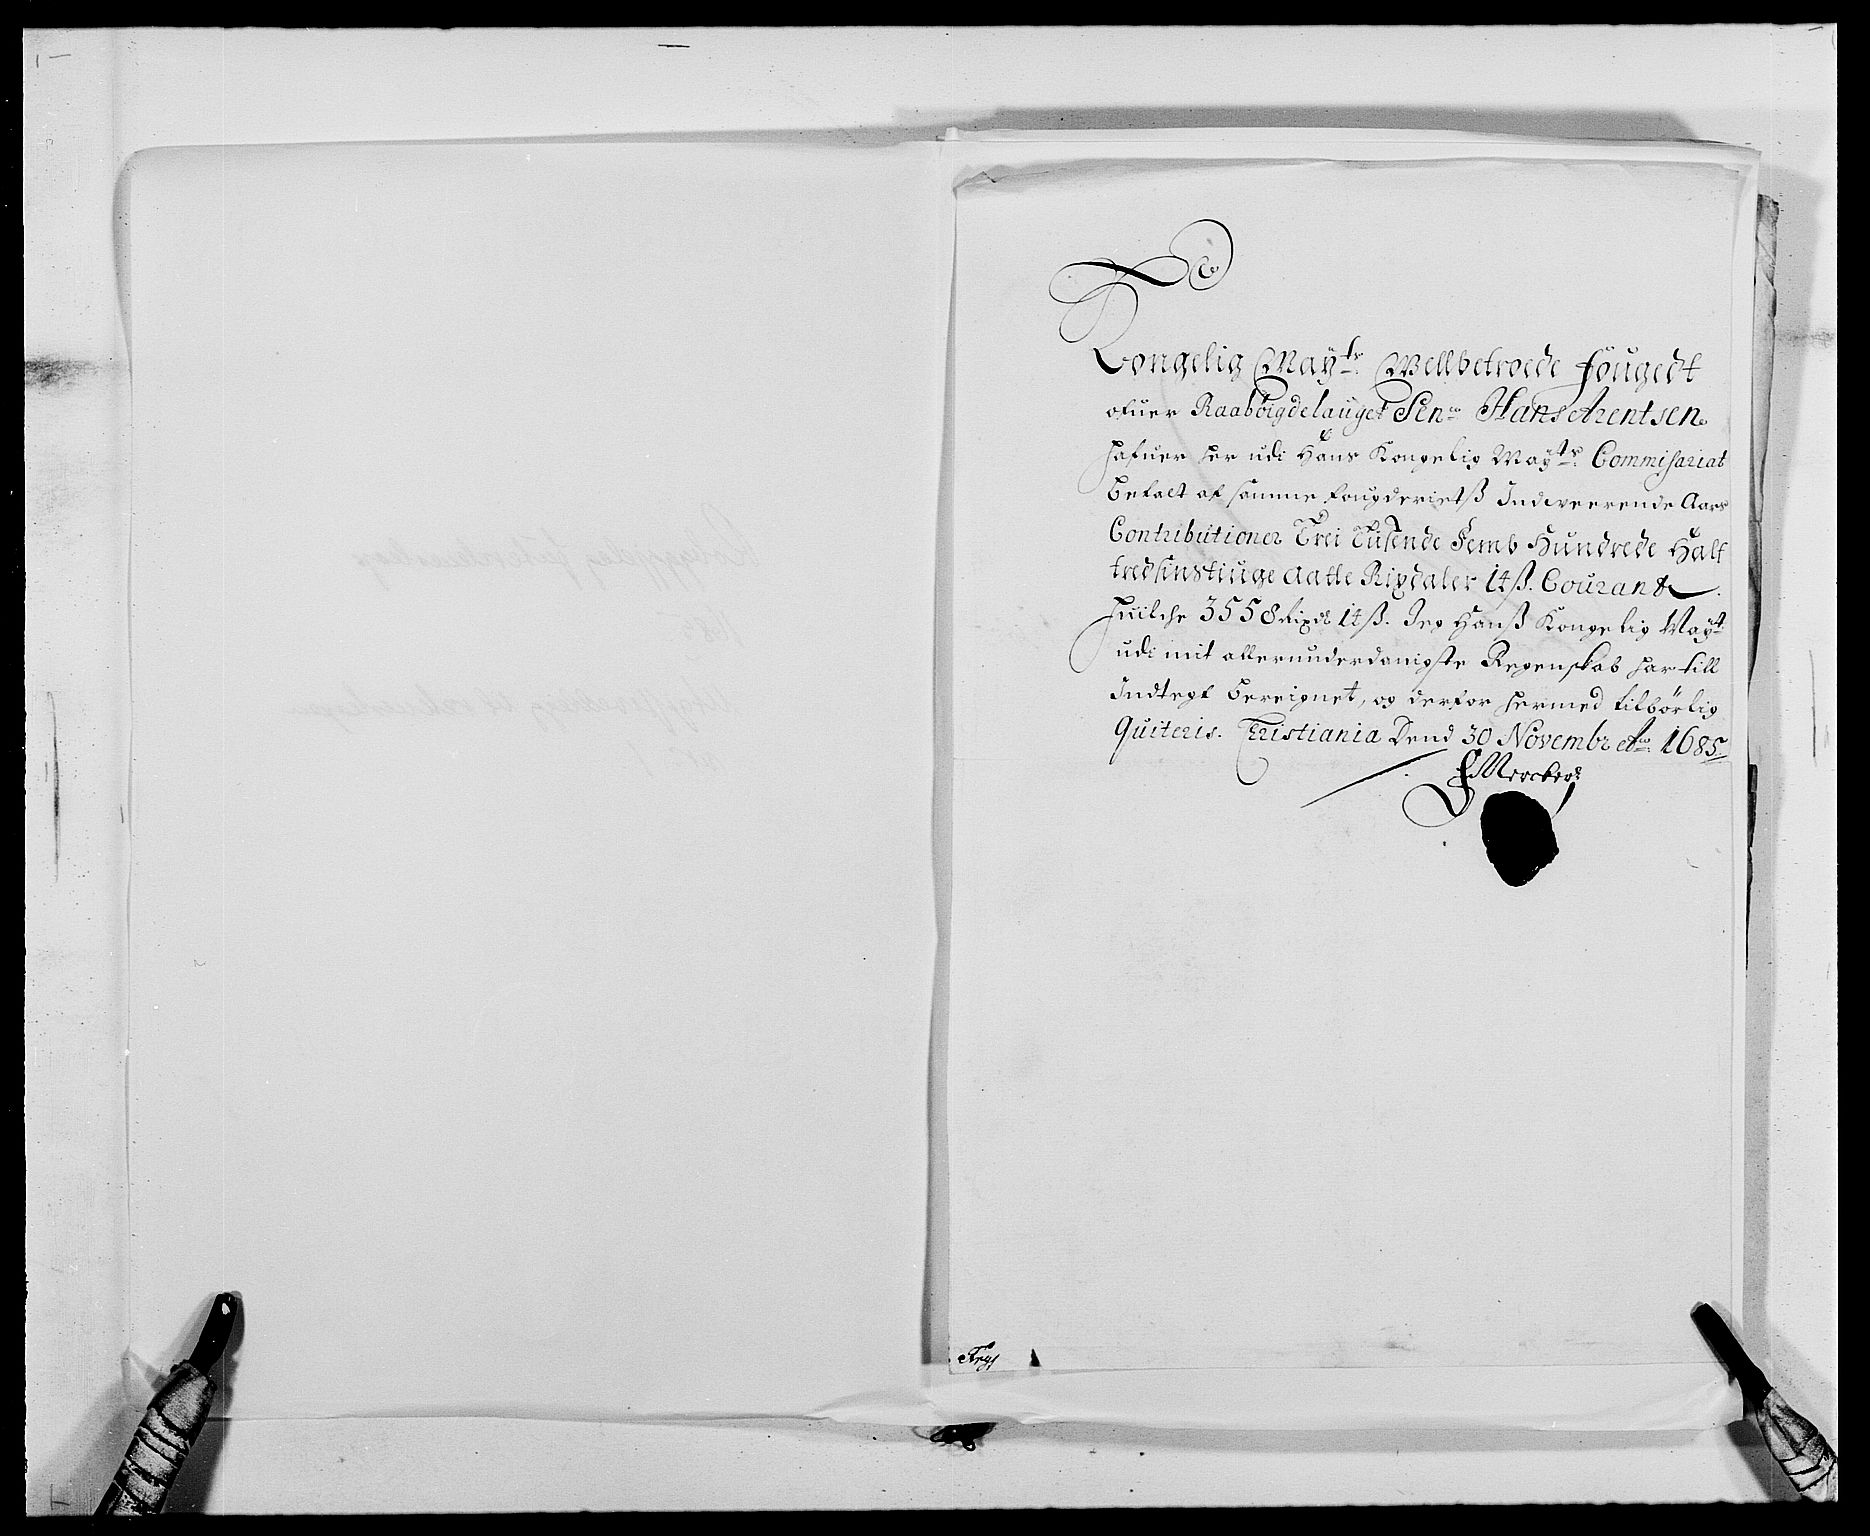 Kongelig Mayts Wellbetroede fougedt
ofuer Raaböigdelauget Sen Hans Arentsen
hafuer her udi Hans Kongelig Mayts Commisariat
betalt af samme fougderietß Indeverende Aars
Contributioner Trei Tusende Femb Hundrede Half
tredsinstiuge aatte Rixdaler 1tß. Courandt
huilche 3558 Rixdr 1tß. Jeg Hanß Kongelig Mayt
udi mit allerunderdanigste Regenskab har till
Indtegt bereignet, og derfor hermed tilbörlig
Quiteris. Christiania Dend 30 Novembr Ao 1685